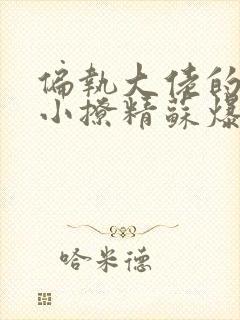 偏執大佬的
小撩精蘇爆
哈米德